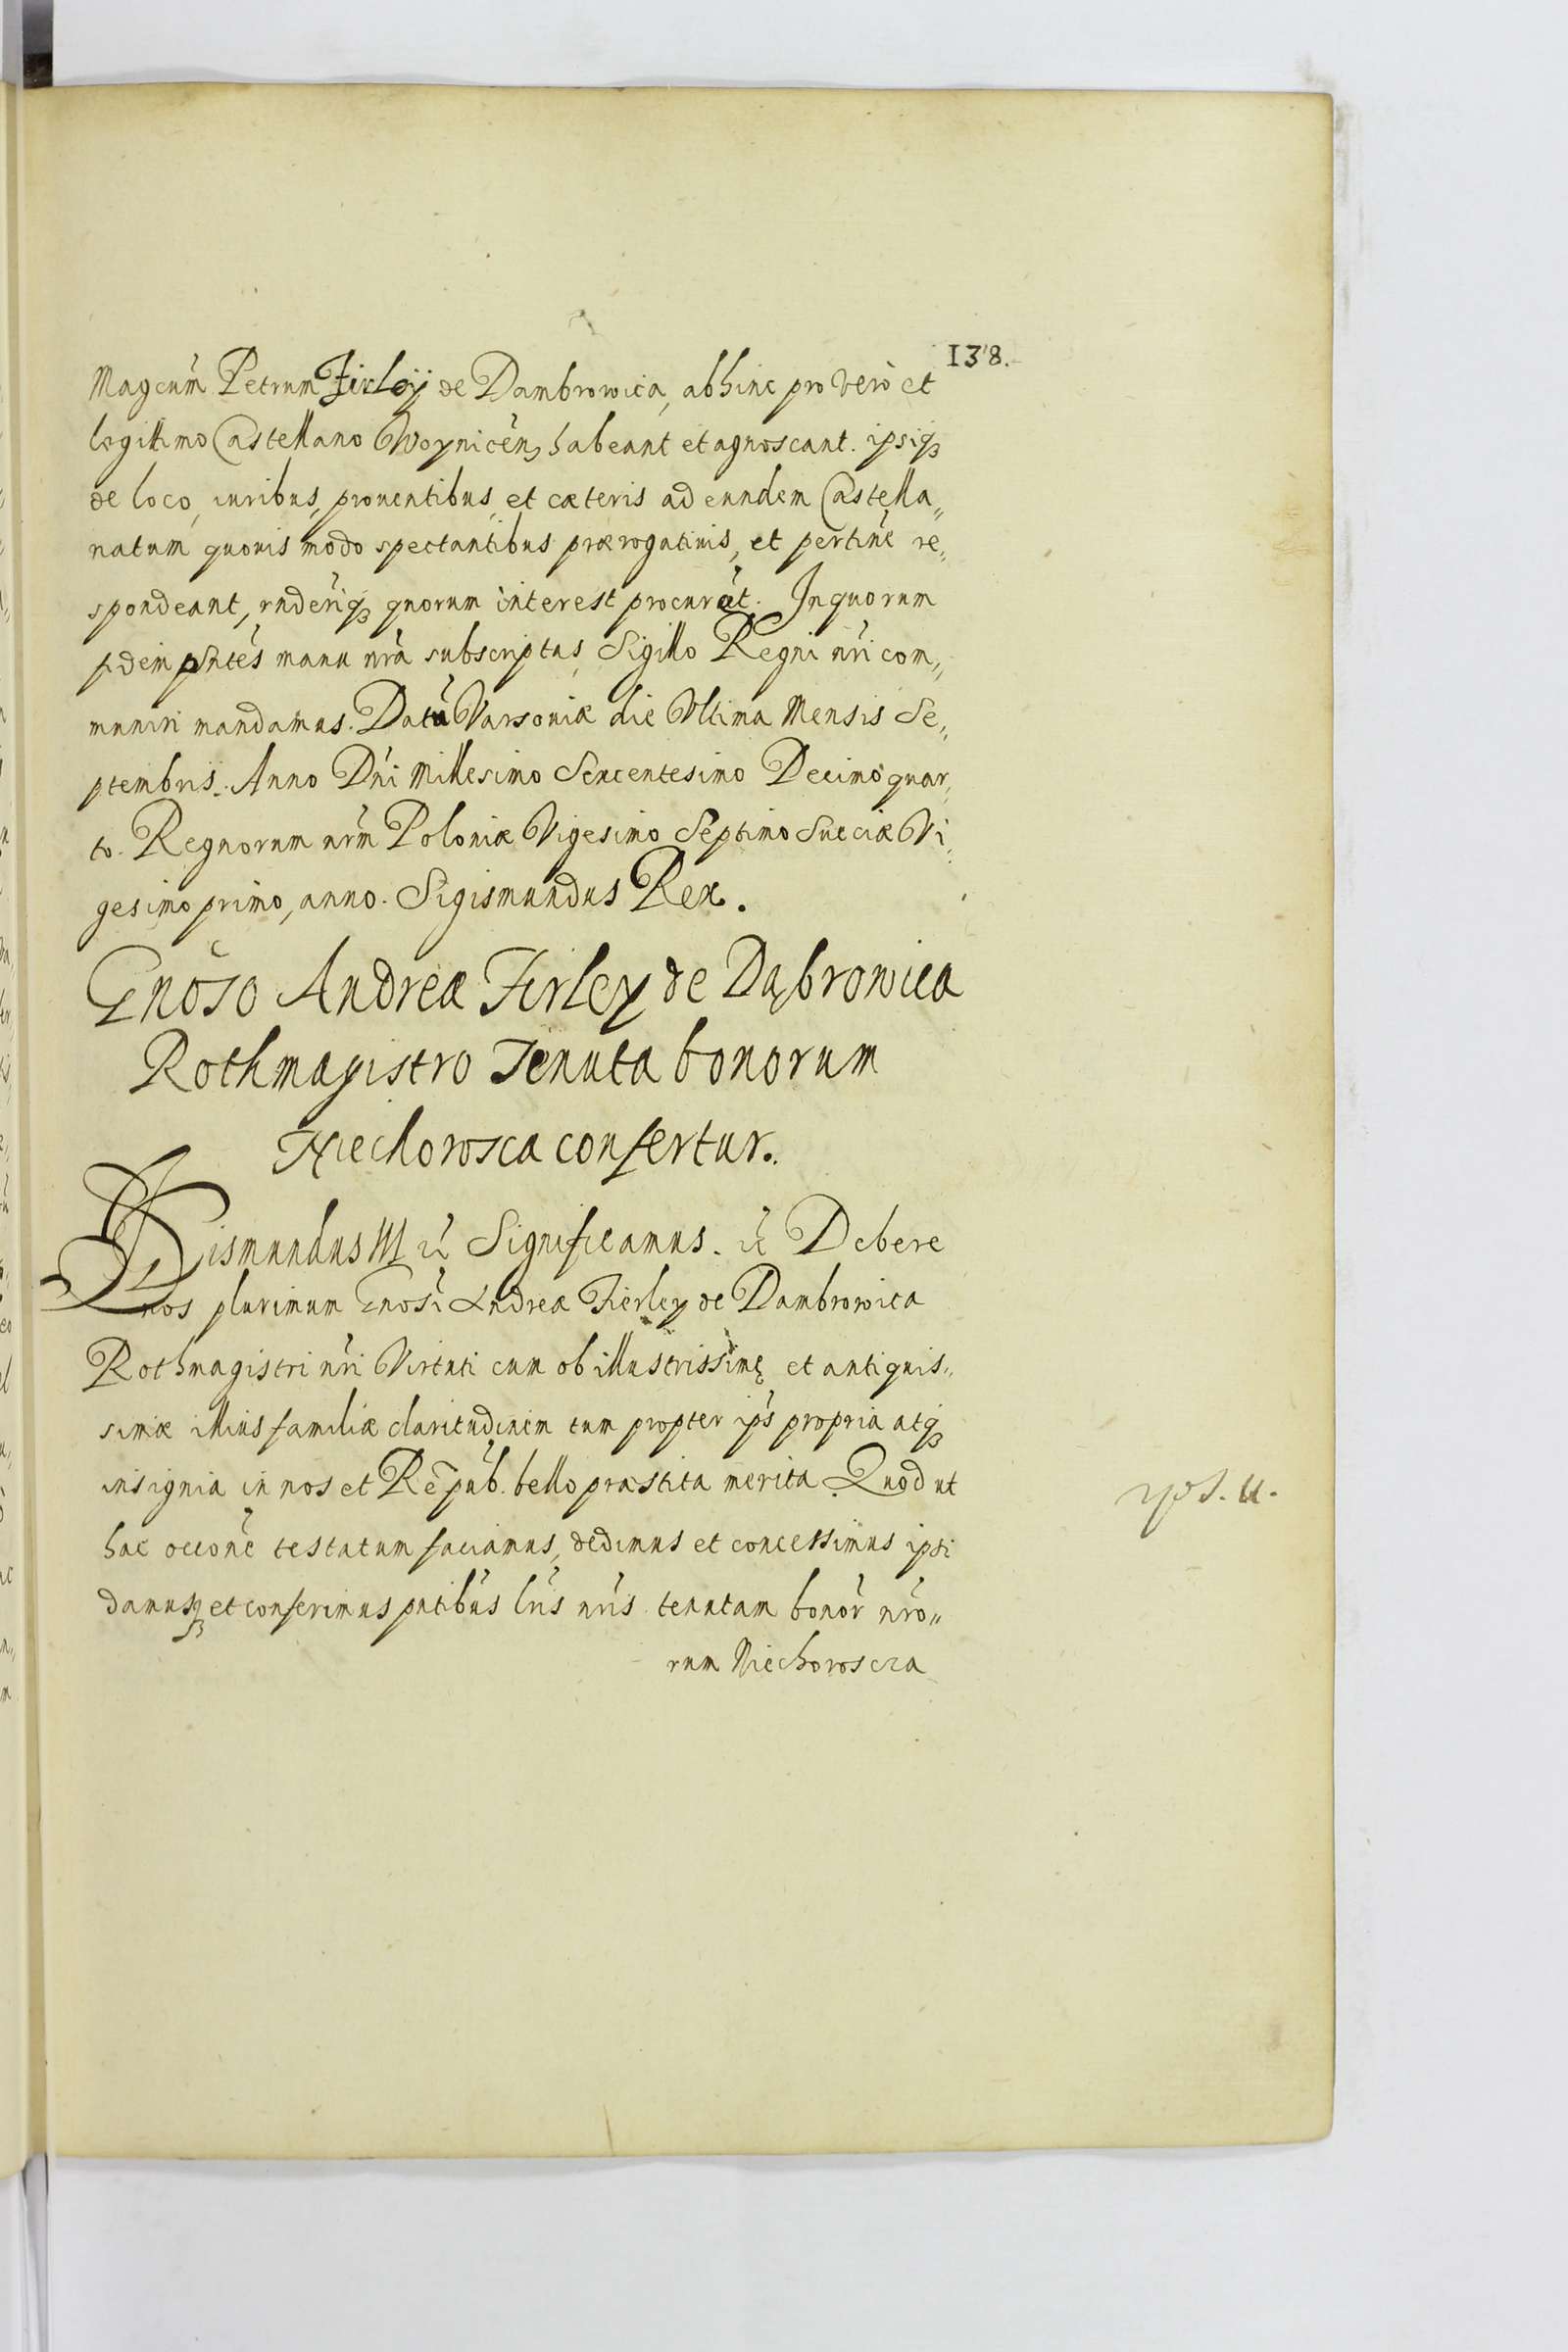 138.
Magcum̃ Petrum Firleij de Dambrowica, abhinc pro verò et
legittimo Castellano Woynicen̄, habeant et agnoscant. ipsiq̃ꝫ
de loco, iuribus, prouentibus, et cæteris ad eundem Castella„
natum quouis modo spectantibus prærogatiuis, et pertinē re„
spondeant, rnderiq̃ꝫ quorum interest procurāt. In quorum
fidem pñtes manu nrã subscriptas, Sigillo Regni nr̃i com„
muniri mandamus. Datū Varsoniæ die Vltima Mensis Se„
ptembris. Anno Dñi Millesimo Sexcentesimo Decimo quar„
to. Regnorum nrm̃ Poloniæ Vigesimo Septimo Sueciæ Vi„
gesimo primo, anno. Sigismundus Rex.
Gnõso Andreæ Firley de Dąbrowica
Rothmagistro Tenuta bonorum
Niechorosca confertur.
Sigismundus III etc̃ Significamus. etc̃ Debere
nos plurimum Gnosĩ Andreæ Fierley de Dambrowica
Rothmagistri nr̃i Virtuti cum ob illustrissimę et antiquis„
simæ illius familiæ claritudinem tum propter ips̃ propria atq̃ꝫ
insignia in nos et Rẽpub. bello præstita merita. Quod ut
hac occõne testatum faciamus, dedimus et concessimus ipsi
damusq̃ꝫ et conferimus pntibũs lr̃is nr̃is tenutam bonor̃ nr̃o„
rum Niechoroscza